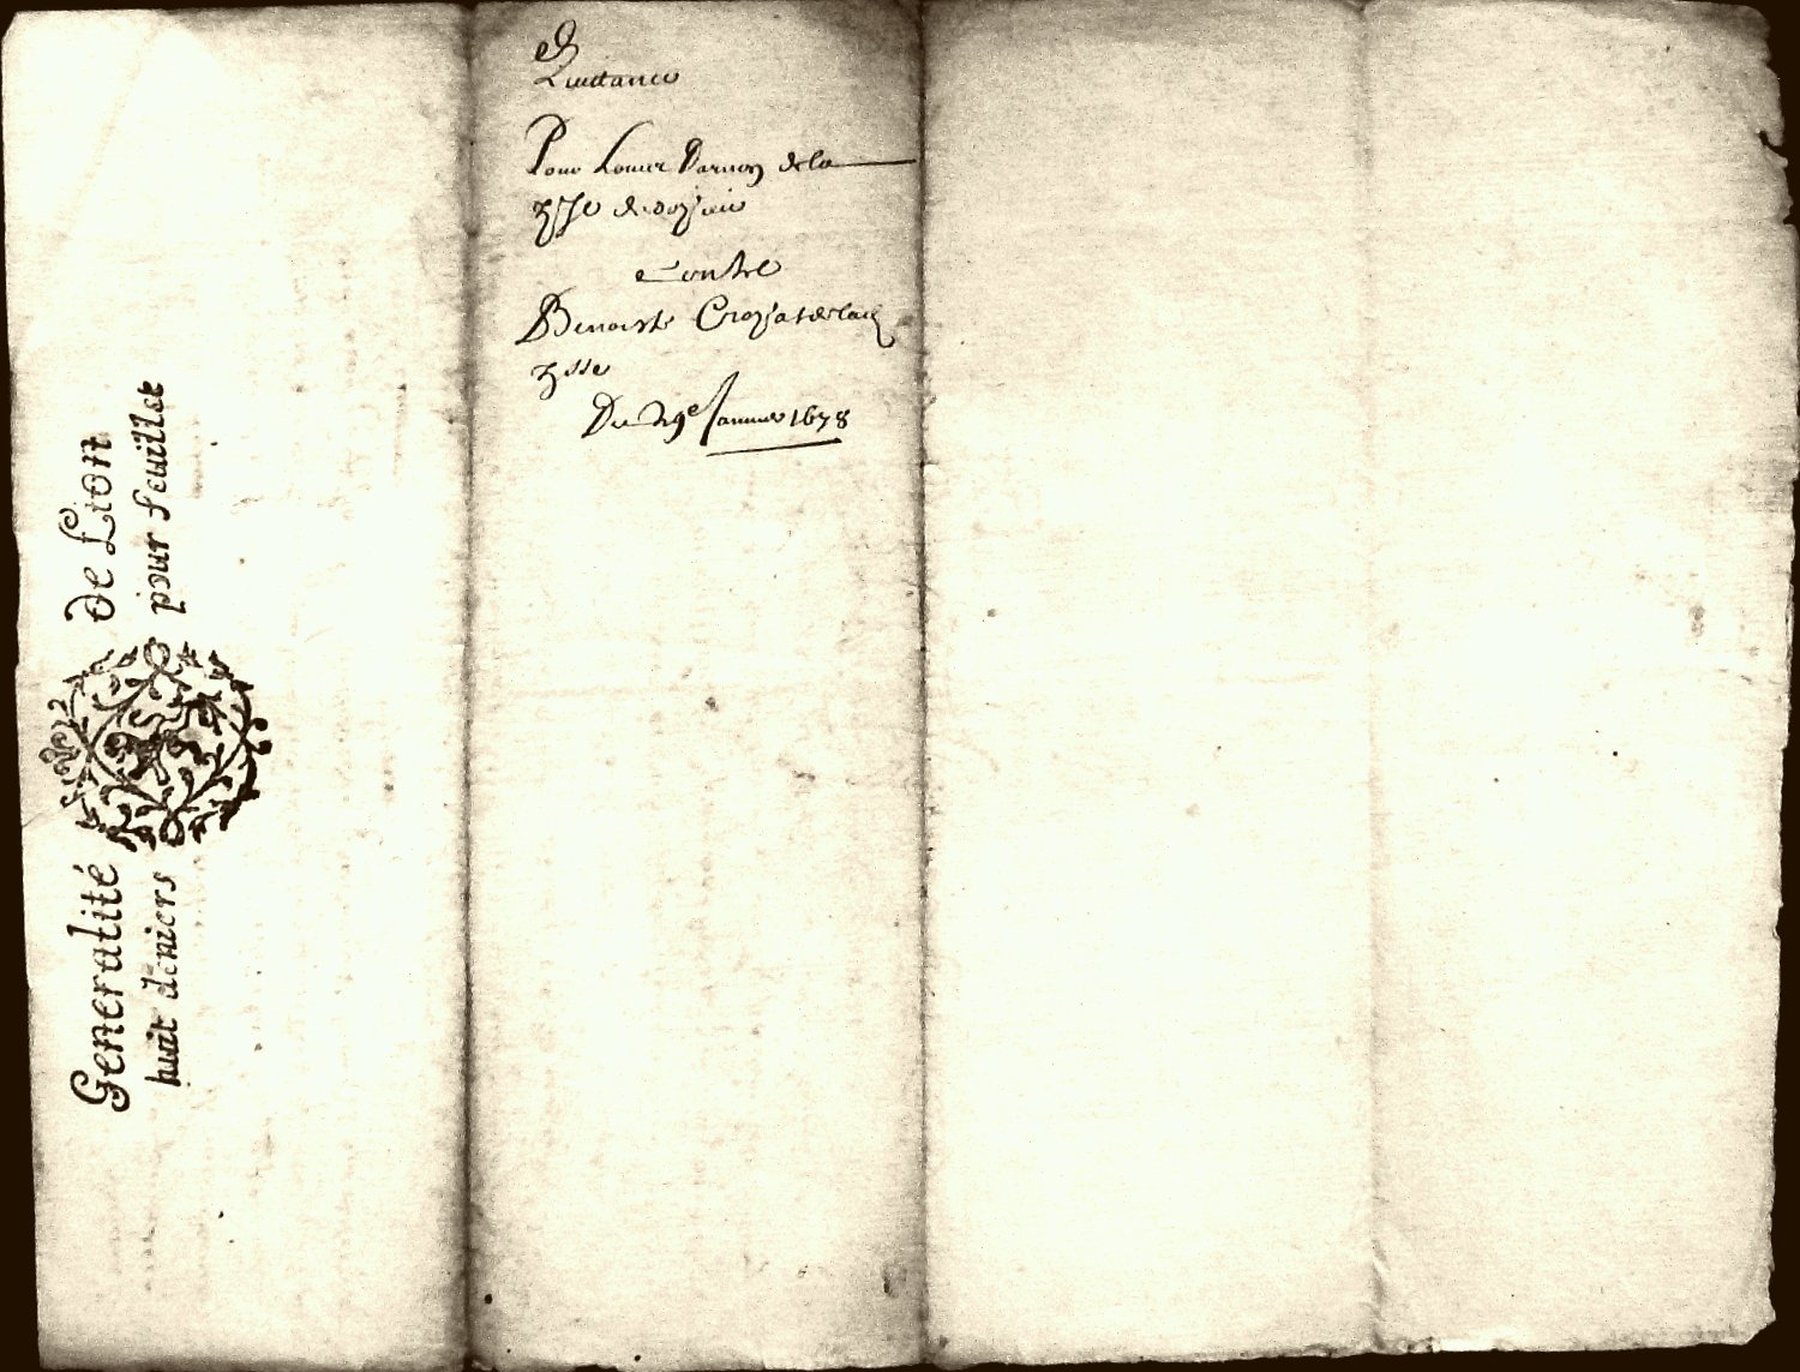 Generalité De Lion
huit deniers pour feuillet
Quittance
Pour Louis Darnon de la
psse de doizieu
Contre
Benoiste Crozat de lad
psse
Du 29e Janvier 1678